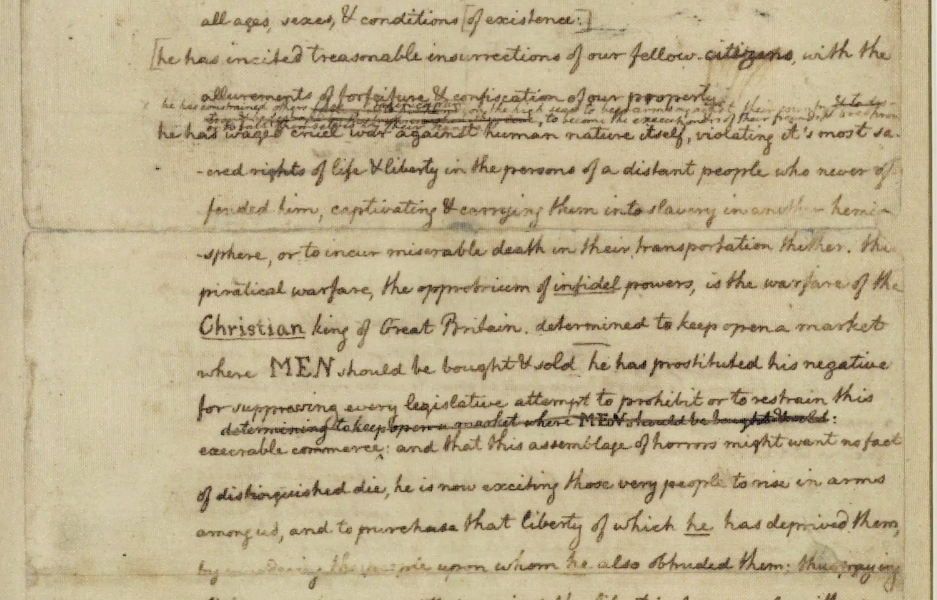 all ages, sexes, & conditions [of existence:]
[he has incited treasonable insurrections of our fellow-citizens, with the
allurements of forfeiture & confiscation of our property.
he has constrained others taken captives on the high seas to bear arms against their country
to become the executioners of their friends
he has waged cruel war against human nature itself, violating it's most sa-
-cred rights of life & liberty in the persons of a distant people who never of-
fended him, captivating & carrying them into slavery in another hemi-
-sphere, or to incur miserable death in their transportation thither. this
piratical warfare, the opprobrium of infidel powers, is the warfare of the
Christian king of Great Britain. determined to keep open a market
where MEN should be bought & sold he has prostituted his negative
for suppressing every legislative attempt to prohibit or to restrain this
determining to keep open a market where MEN should be bought & sold:
execrable commerce: and that this assemblage of horrors might want no fact
of distinguished die, he is now exciting those very people to rise in arms
among us, and to purchase that liberty of which he has deprived them,
by murdering the people upon whom he also obtruded them: thus paying